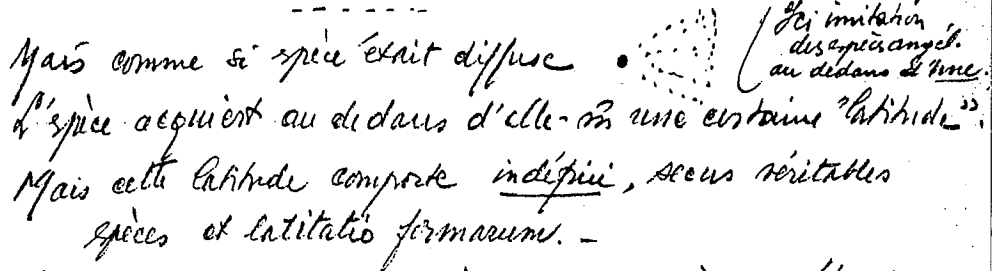 Mais comme si espèce était diffuse
(Ici imitation
des espèces angél.
au dedans d'une.
L'espèce acquiert au dedans d'elle-m̄ une certaine "latitude".
Mais cette latitude comporte indéfini, secus véritables
espèces et latitatio formarum. –